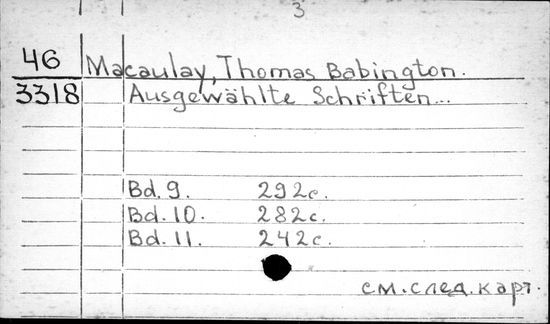 3
46 Macaulay, Thomas Babington.
3318 Ausgewählte Schriften...
Bd. 9. 292c.
Bd. 10. 282c.
Bd. 11. 242c.
см. след. карт.